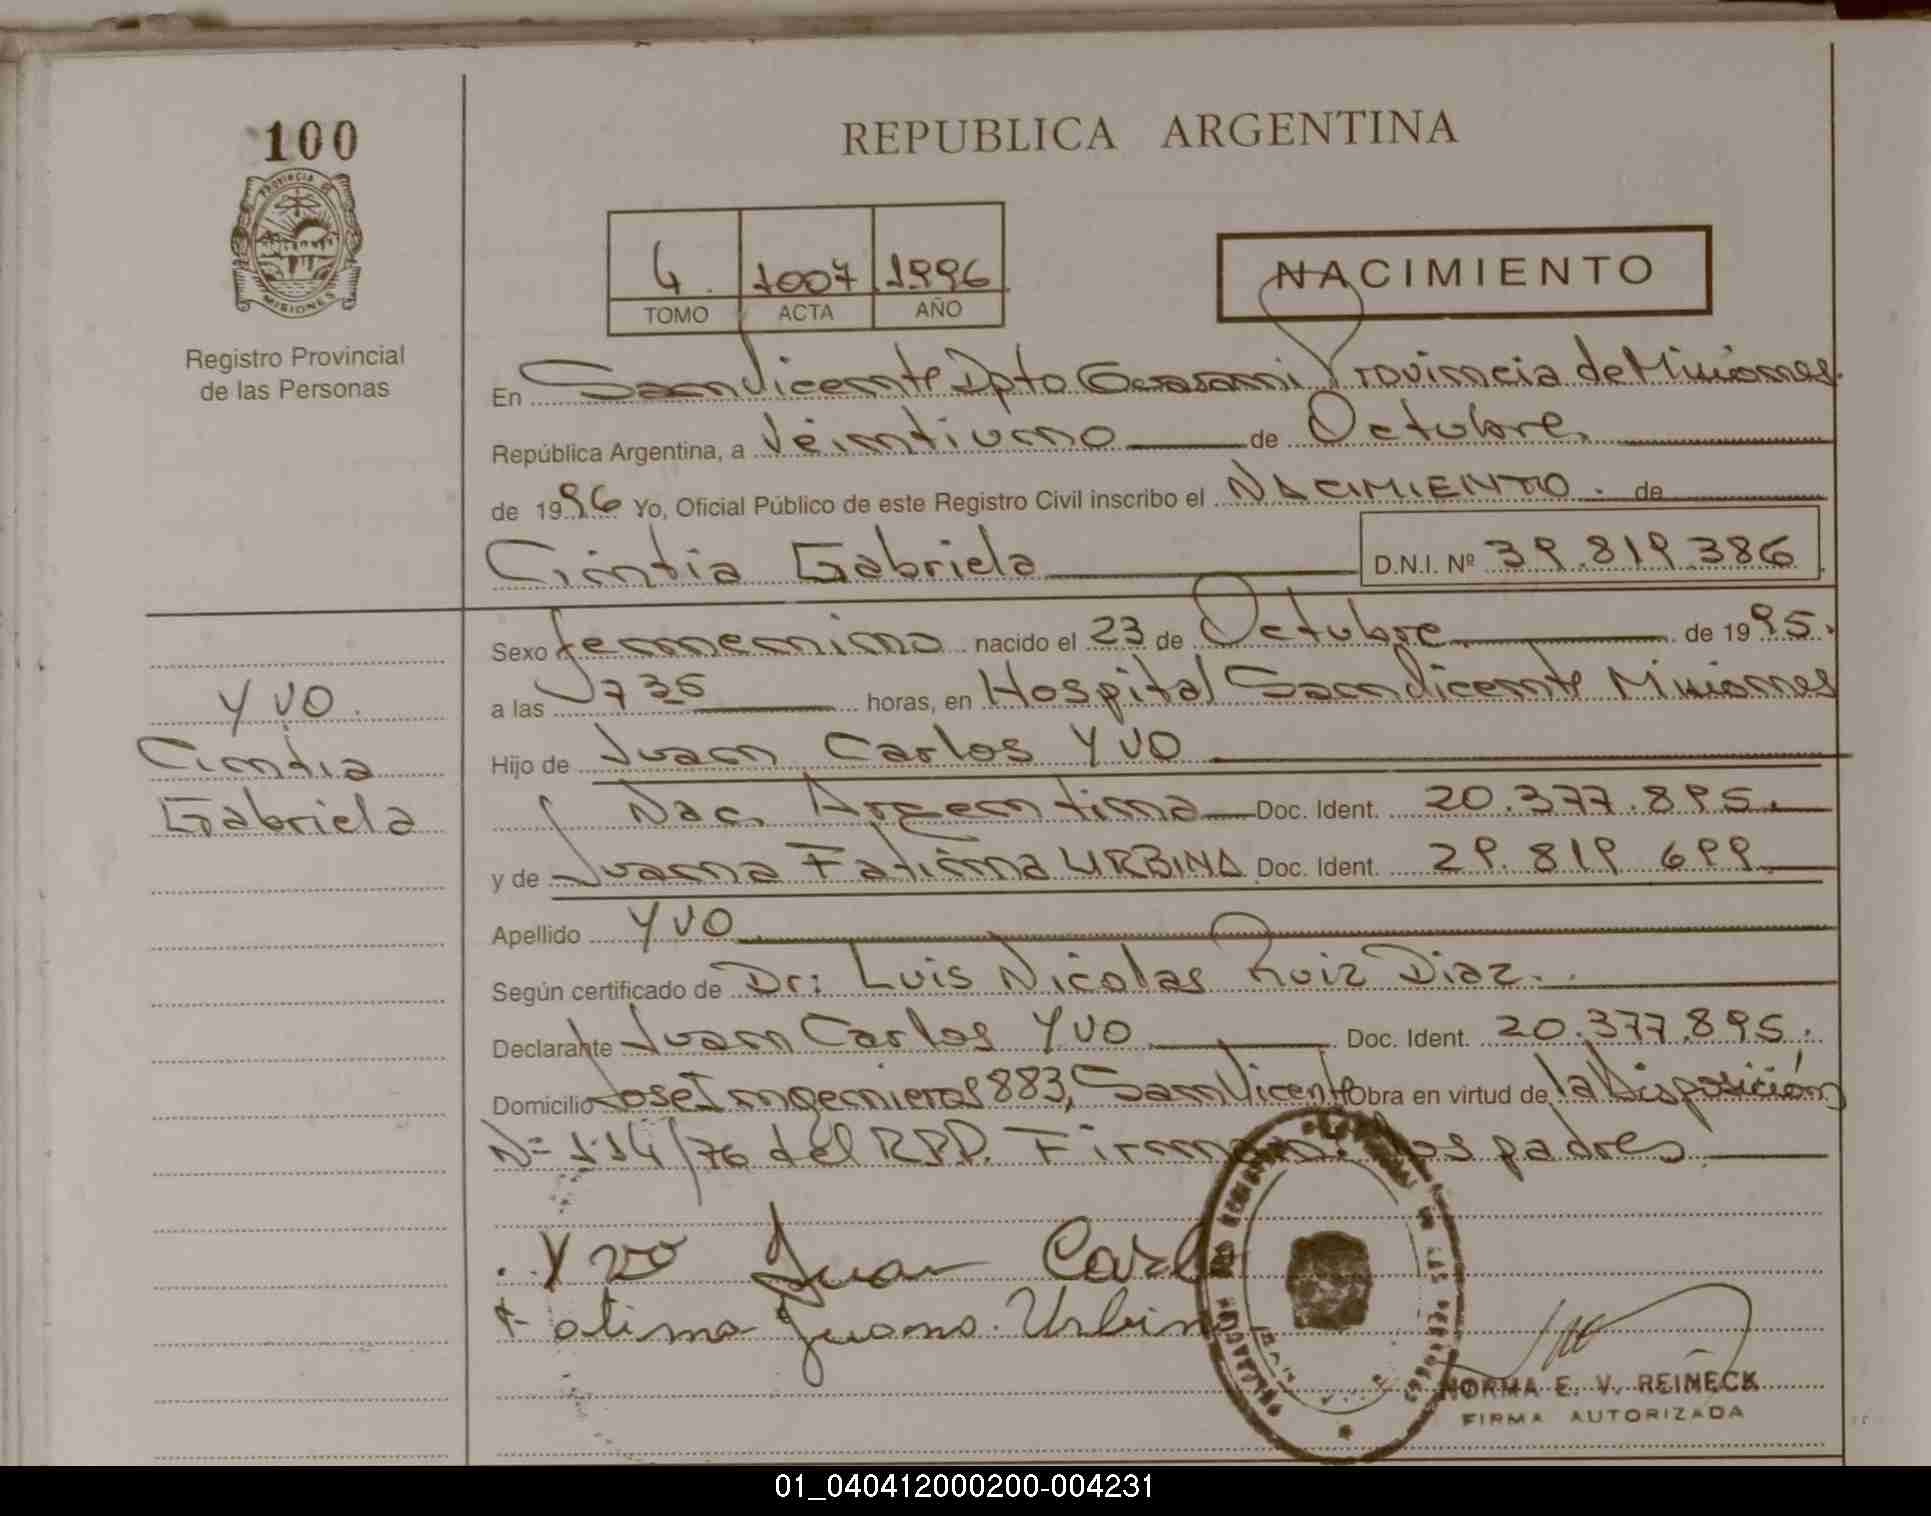 100
PROVINCIA DE
MISIONES
Registro Provincial
de las Personas
REPUBLICA ARGENTINA
4 1007 1996
TOMO ACTA AÑO
NACIMIENTO
En San Vicente Dpto Guarani Provincia de Misiones.
República Argentina, a Veintiuno de Octubre
de 1996 Yo, Oficial Público de este Registro Civil inscribo el NACIMIENTO. de
Cintia Gabriela D.N.I. Nº 39.819.386
Sexo femenino nacido el 23 de Octubre de 1995.
a las horas, en Hospital San Vicente Misiones
Hijo de Juan Carlos YVO
Nac. Argentina Doc. Ident. 20.377.895.
y de Juana Fatima URBINA Doc. Ident. 29.819 699
Apellido YVO
Según certificado de Dr: Luis Nicolas Ruiz Diaz.
Declarante Juan Carlos YVO Doc. Ident. 20.377.895.
Domicilio Jose Ingenieros 883, San Vicente Obra en virtud de la Disposición
N= 114/76 del R.P.P. Firman: los padres
YVO
Cintia
Gabriela
Yvo Juan Carl
Fatima Juana Urbin
NORMA E. V. REINECK
FIRMA AUTORIZADA
01_040412000200-004231